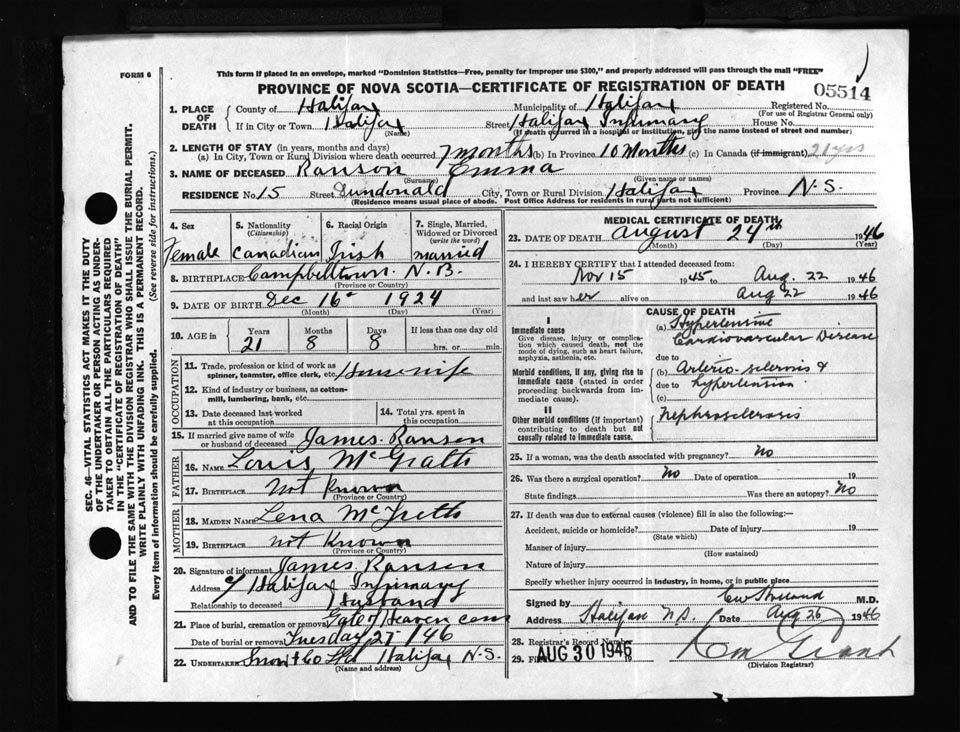 FORM 6
This form if placed in an envelope, marked "Dominion Statistics—Free, penalty for improper use $300," and properly addressed will pass through the mail "FREE"
PROVINCE OF NOVA SCOTIA—CERTIFICATE OF REGISTRATION OF DEATH
05514
1. PLACE OF DEATH
County of Halifax Municipality of Halifax Registered No.
(For use of Registrar General only)
If in City or Town Halifax Street Halifax Infirmary House No.
(Name) (If death occurred in a hospital or institution, give the name instead of street and number)
2. LENGTH OF STAY (in years, months and days)
(a) In City, Town or Rural Division where death occurred 7 months (b) In Province 10 Months (c) In Canada (if immigrant) 21 yrs
3. NAME OF DECEASED Ranson Emma
(Surname) (Given name or names)
RESIDENCE No. 15 Street Dundonald City, Town or Rural Division Halifax Province N.S.
(Residence means usual place of abode. Post Office Address for residents in rural parts not sufficient)
4. Sex
Female
5. Nationality
(Citizenship)
Canadian
6. Racial Origin
Irish
7. Single, Married, Widowed or Divorced
(write the word)
married
8. BIRTHPLACE Campbelltown. N.B.
(Province or Country)
9. DATE OF BIRTH Dec 16 1924
(Month) (Day) (Year)
10. AGE in
Years Months Days If less than one day old
21 8 8 hrs. or min.
OCCUPATION
11. Trade, profession or kind of work as spinner, teamster, office clerk, etc. Housewife
12. Kind of industry or business, as cotton-mill, lumbering, bank, etc.
13. Date deceased last worked at this occupation
14. Total yrs. spent in this occupation
15. If married give name of wife or husband of deceased James Ranson
FATHER
16. NAME Louis McGrath
17. BIRTHPLACE Not Known
(Province or Country)
MOTHER
18. MAIDEN NAME Lena
19. BIRTHPLACE not Known
(Province or Country)
20. Signature of informant James Ranson
Address c/ Halifax Infirmary
Relationship to deceased Husband
21. Place of burial, cremation or removal Gate of Heaven cem
Date of burial or removal Tuesday 27 /46
22. UNDERTAKER Snow & Co Ltd Halifax N.S.
(Name and address)
MEDICAL CERTIFICATE OF DEATH
23. DATE OF DEATH August 24th 1946
(Month) (Day) (Year)
24. I HEREBY CERTIFY that I attended deceased from:
Nov 15 1945 to Aug. 22 1946
and last saw her alive on Aug 22 1946
CAUSE OF DEATH
I
Immediate cause
Give disease, injury or complication which caused death, not the mode of dying, such as heart failure, asphyxia, asthenia, etc.
(a) Hypertensive Cardiovascular Disease
due to
Morbid conditions, if any, giving rise to immediate cause (stated in order proceeding backwards from immediate cause).
(b) Arterio-sclerosis &
due to hypertension
(c)
II
Other morbid conditions (if important) contributing to death but not causally related to immediate cause.
Nephrosclerosis
25. If a woman, was the death associated with pregnancy? No
26. Was there a surgical operation? No Date of operation 19
State findings Was there an autopsy? No
27. If death was due to external causes (violence) fill in also the following:—
Accident, suicide or homicide? Date of injury 19
(State which)
Manner of injury
(How sustained)
Nature of injury
Specify whether injury occurred in industry, in home, or in public place
Signed by M.D.
Address Halifax N.S. Date Aug 26 1946
28. Registrar's Record Number
29. Filed AUG 30 1946
Grant
(Division Registrar)
SEC. 46—VITAL STATISTICS ACT MAKES IT THE DUTY
OF THE UNDERTAKER OR PERSON ACTING AS UNDERTAKER TO OBTAIN ALL THE PARTICULARS REQUIRED
IN THE "CERTIFICATE OF REGISTRATION OF DEATH"
AND TO FILE THE SAME WITH THE DIVISION REGISTRAR WHO SHALL ISSUE THE BURIAL PERMIT.
WRITE PLAINLY WITH UNFADING INK. THIS IS A PERMANENT RECORD.
Every item of information should be carefully supplied. (See reverse side for instructions.)